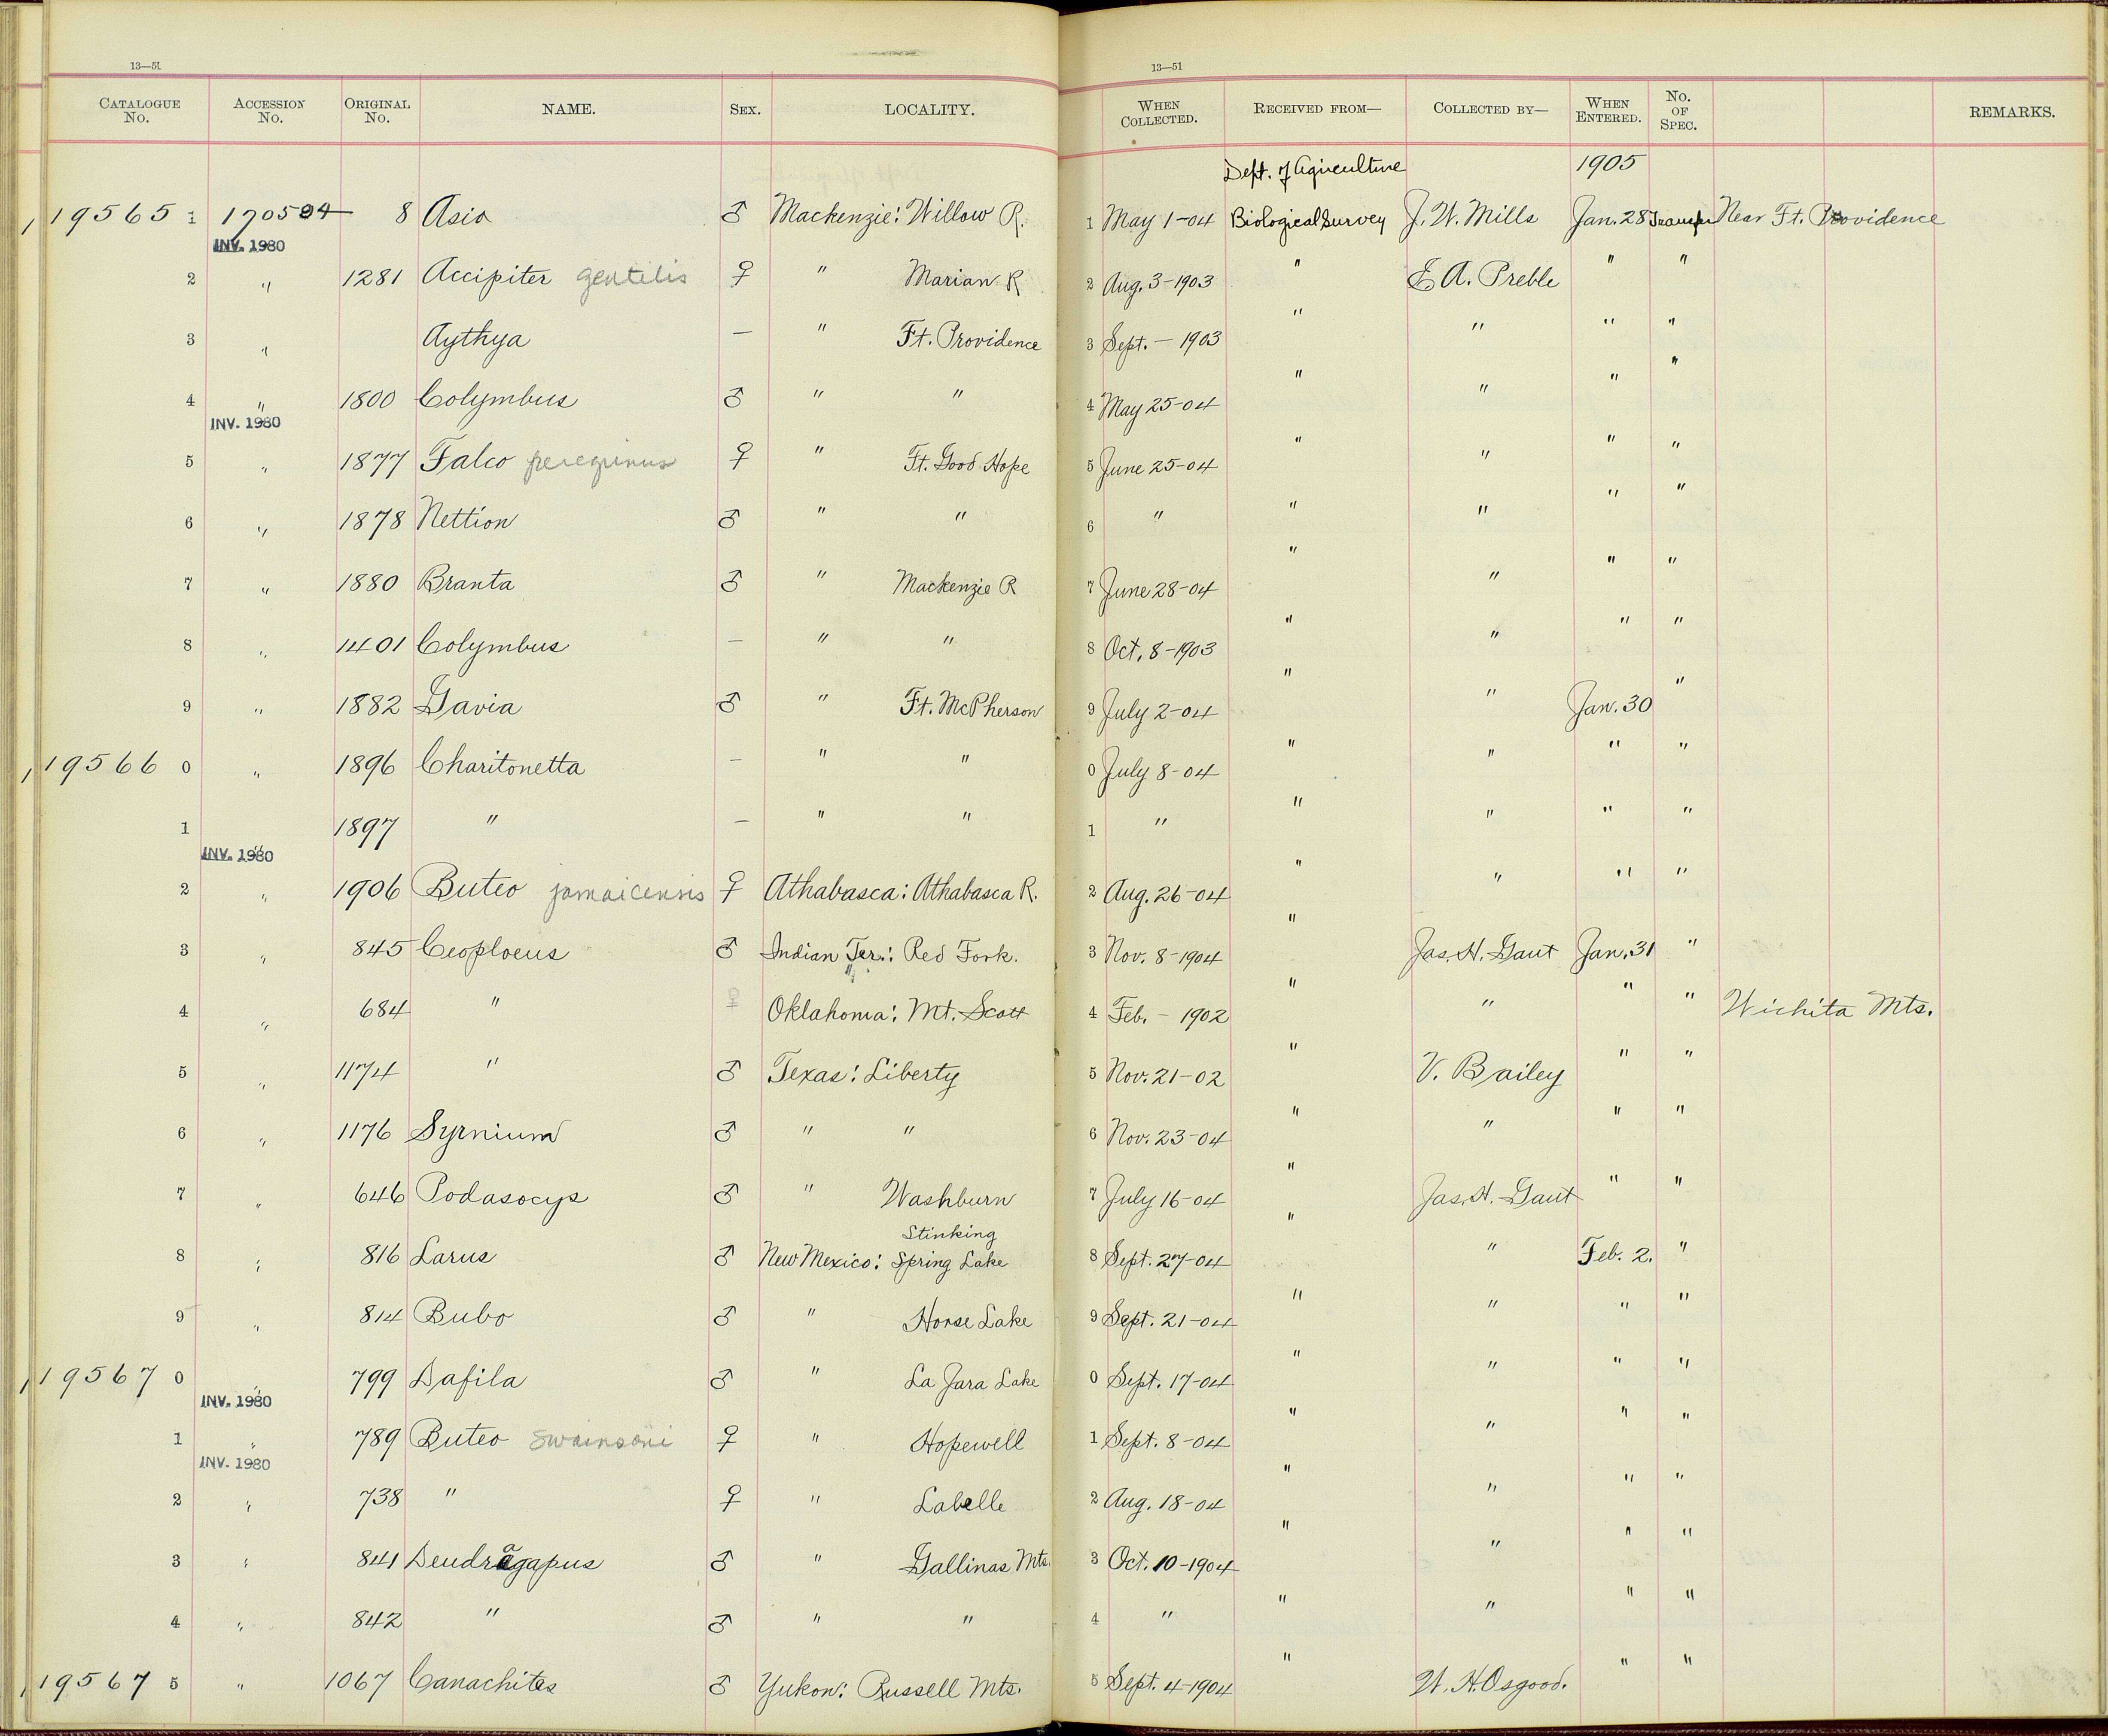 13—51 13—51
CATALOGUE No. ACCESSION No. ORIGINAL No. NAME. SEX. LOCALITY. WHEN COLLECTED. RECEIVED FROM— COLLECTED BY— WHEN ENTERED. No. OF SPEC. REMARKS.
Dept. of Agriculture 1905
19565 1 170504 8 Asio ♂ Mackenzie: Willow R. 1 May 1-04 Biological Survey J. W. Mills Jan. 28 Transfer Near Ft. Providence
INV. 1980
2 " 1281 Accipiter gentilis ♀ " Marian R 2 Aug. 3-1903 " E A. Preble " "
3 " Aythya — " Ft. Providence 3 Sept. — 1903 " " " "
4 " 1800 Colymbus ♂ " " 4 May 25-04 " " " "
INV. 1980
5 " 1877 Falco peregrinus ♀ " Ft. Good Hope 5 June 25-04 " " " "
6 " 1878 Nettion ♂ " " 6 " " " " "
7 " 1880 Branta ♂ " Mackenzie R 7 June 28-04 " " " "
8 " 1401 Colymbus — " " 8 Oct. 8-1903 " " " "
9 " 1882 Gavia ♂ " Ft. McPherson 9 July 2-04 " " Jan. 30 "
19566 0 " 1896 Charitonetta — " " 0 July 8-04 " " " "
1 " 1897 " — " " 1 " " " " "
INV. 1980
2 " 1906 Buteo jamaicensis ♀ Athabasca: Athabasca R. 2 Aug. 26-04 " " " "
3 " 845 Ceophloeus ♂ Indian Ter.: Red Fork. 3 Nov. 8-1904 " Jas. H. Gaut Jan. 31 "
4 " 684 " ♀ Oklahoma: Mt. Scott 4 Feb. — 1902 " " " " Wichita Mts.
5 " 1174 " ♂ Texas: Liberty 5 Nov. 21-02 " V. Bailey " "
6 " 1176 Syrnium ♂ " " 6 Nov. 23-04 " " " "
7 " 646 Podasocys ♂ " Washburn 7 July 16-04 " Jas. H. Gaut " "
Stinking
8 " 816 Larus ♂ New Mexico: Spring Lake 8 Sept. 27-04 " " Feb. 2. "
9 " 814 Bubo ♂ " Horse Lake 9 Sept. 21-04 " " " "
19567 0 " 799 Dafila ♂ " La Jara Lake 0 Sept. 17-04 " " " "
INV. 1980
1 " 789 Buteo swainsoni ♀ " Hopewell 1 Sept. 8-04 " " " "
INV. 1980
2 " 738 " ♀ " Labelle 2 Aug. 18-04 " " " "
3 " 841 Dendragapus ♂ " Gallinas Mts. 3 Oct. 10-1904 " " " "
4 " 842 " ♂ " " 4 " " " " "
19567 5 " 1067 Canachites ♂ Yukon: Russell Mts. 5 Sept. 4-1904 " W. H. Osgood. " "